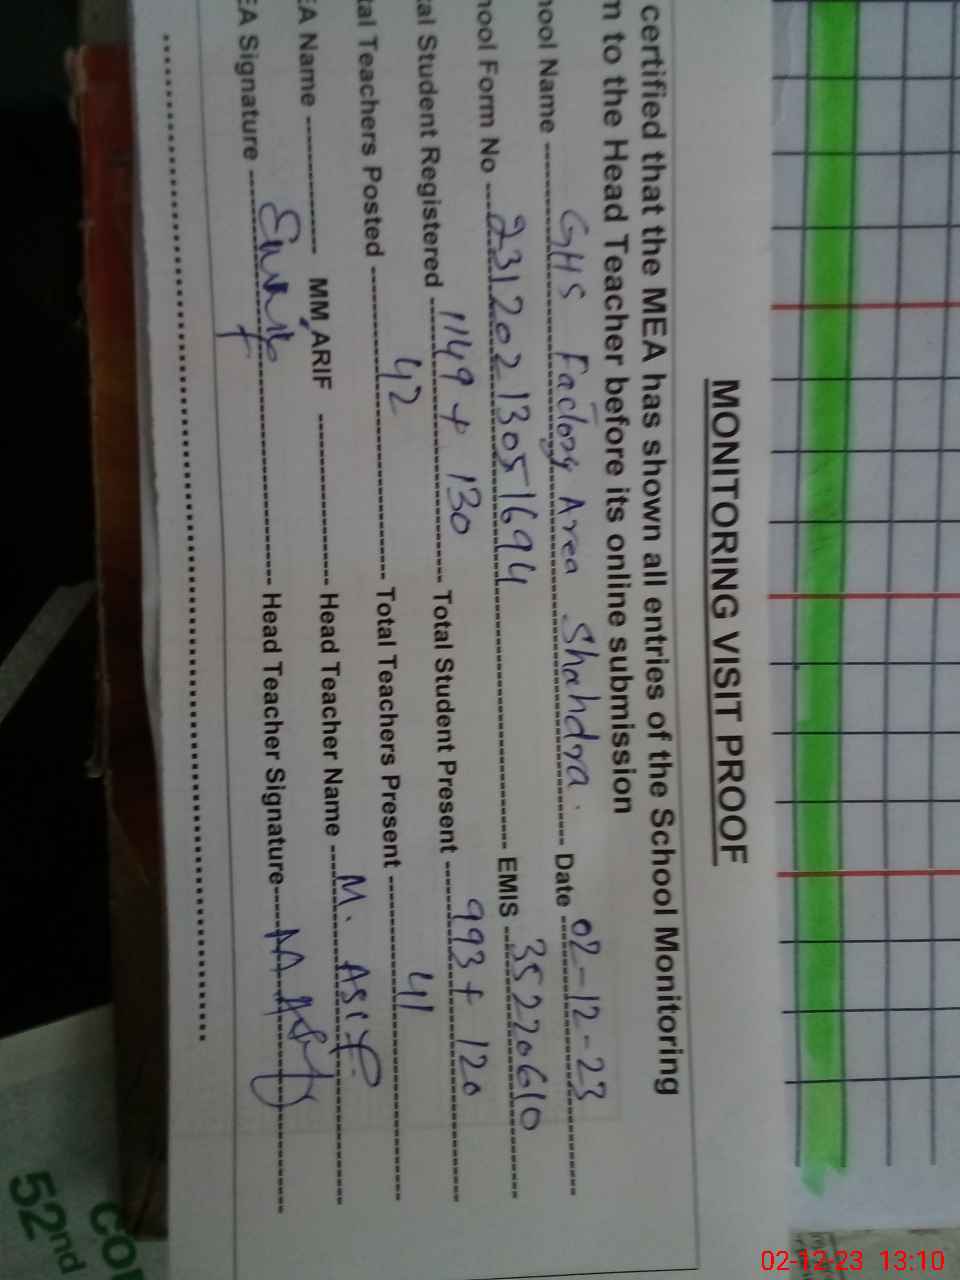 MONITORING VISIT PROOF
certified that the MEA has shown all entries of the School Monitoring
m to the Head Teacher before its online submission
hool Name GHS Factory Area Shahdra. Date 02-12-23
hool Form No 23120213051694 EMIS 35220610
tal Student Registered 1149 + 130 Total Student Present 993 + 120
tal Teachers Posted 42 Total Teachers Present 41
EA Name MM ARIF Head Teacher Name M. ASif
EA Signature Head Teacher Signature M Asif
52nd
02-12-23 13:10